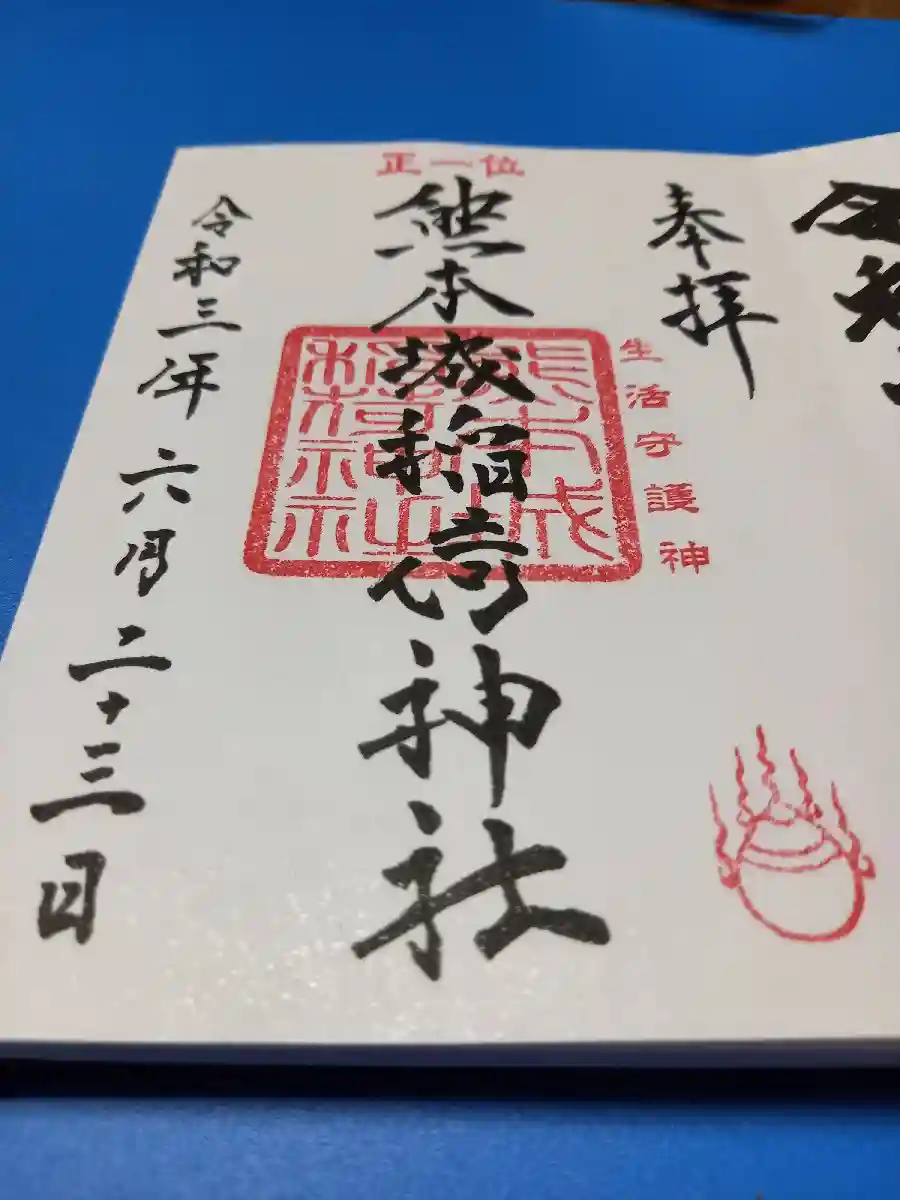 奉拝
生活守護神
正一位
熊本城稲荷神社
熊本城
稲荷神社
令和三年六月二十三日